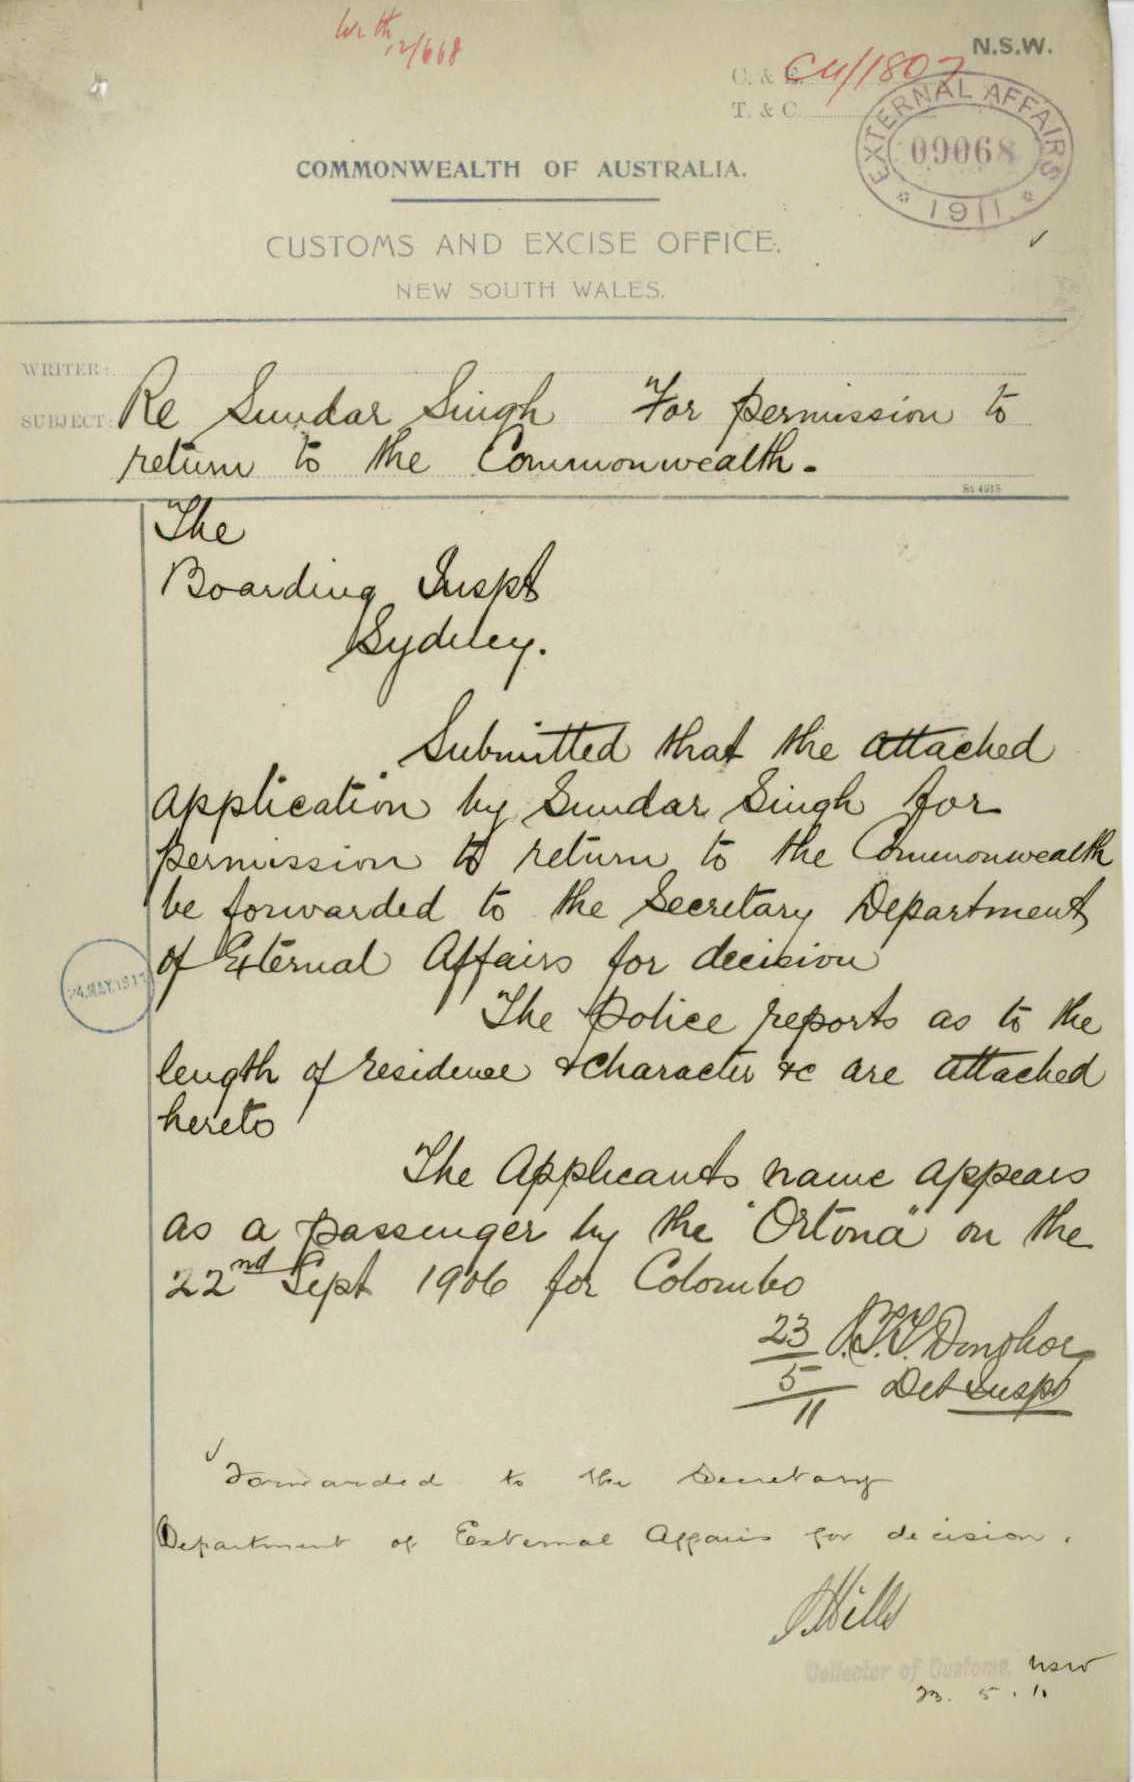 With
12/668
N.S.W.
C. & E. C11/1807
T. & C.
EXTERNAL AFFAIRS
09068
1911
COMMONWEALTH OF AUSTRALIA.
CUSTOMS AND EXCISE OFFICE.
NEW SOUTH WALES.
WRITER:
SUBJECT: Re Sundar Singh For permission to
return to the Commonwealth.
The
Boarding Inspt
Sydney.
Submitted that the attached
application by Sundar Singh for
permission to return to the Commonwealth
be forwarded to the Secretary Department
of External Affairs for decision
24 MAY 1911
The police reports as to the
length of residence & character &c are attached
hereto
The Applicants name appears
as a passenger by the "Ortona" on the
22nd Sept 1906 for Colombo
23
5
11
Donohoe
Det Inspt
Forwarded to the Secretary
Department of External Affairs for decision.
Mills
Collector of Customs, NSW
23. 5. 11